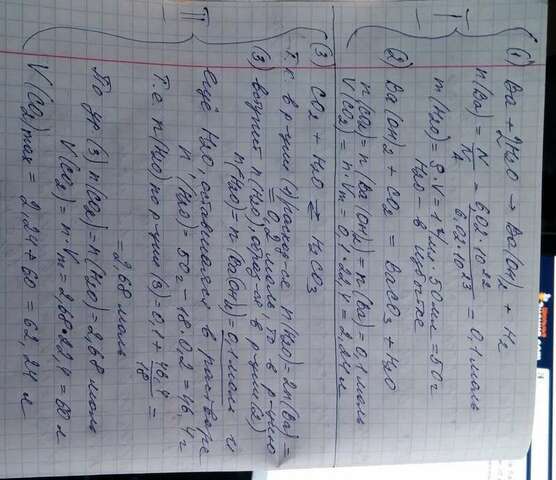 I
(1) Ba + 2H₂O → Ba(OH)₂ + H₂
n(Ba) = N/N_A = 6,02·10²²/6,02·10²³ = 0,1 моль
m(H₂O) = ρ·V = 1 г/мл · 50 мл = 50 г
H₂O – в избытке
(2) Ba(OH)₂ + CO₂ = BaCO₃ + H₂O
n(CO₂) = n(Ba(OH)₂) = n(Ba) = 0,1 моль
V(CO₂) = n·Vm = 0,1·22,4 = 2,24 л
II
(3) CO₂ + H₂O ⇄ H₂CO₃
Т.к. в р-ции (1) расход-ся n(H₂O) = 2n(Ba) =
= 0,2 моль, то в р-цию
(3) вступит n(H₂O), образ-ся в р-ции (2)
n(H₂O) = n(Ba(OH)₂) = 0,1 моль и
ещё H₂O, оставшаяся в растворе
n₁(H₂O) = 50 г – 18·0,2 = 46,4 г
Т.е. n(H₂O) по р-ции (3) = 0,1 + 46,4/18 =
= 2,68 моль
По ур. (3) n(CO₂) = n(H₂O) = 2,68 моль
V(CO₂) = n·Vm = 2,68·22,4 = 60 л
V(CO₂)max = 2,24 + 60 = 62,24 л